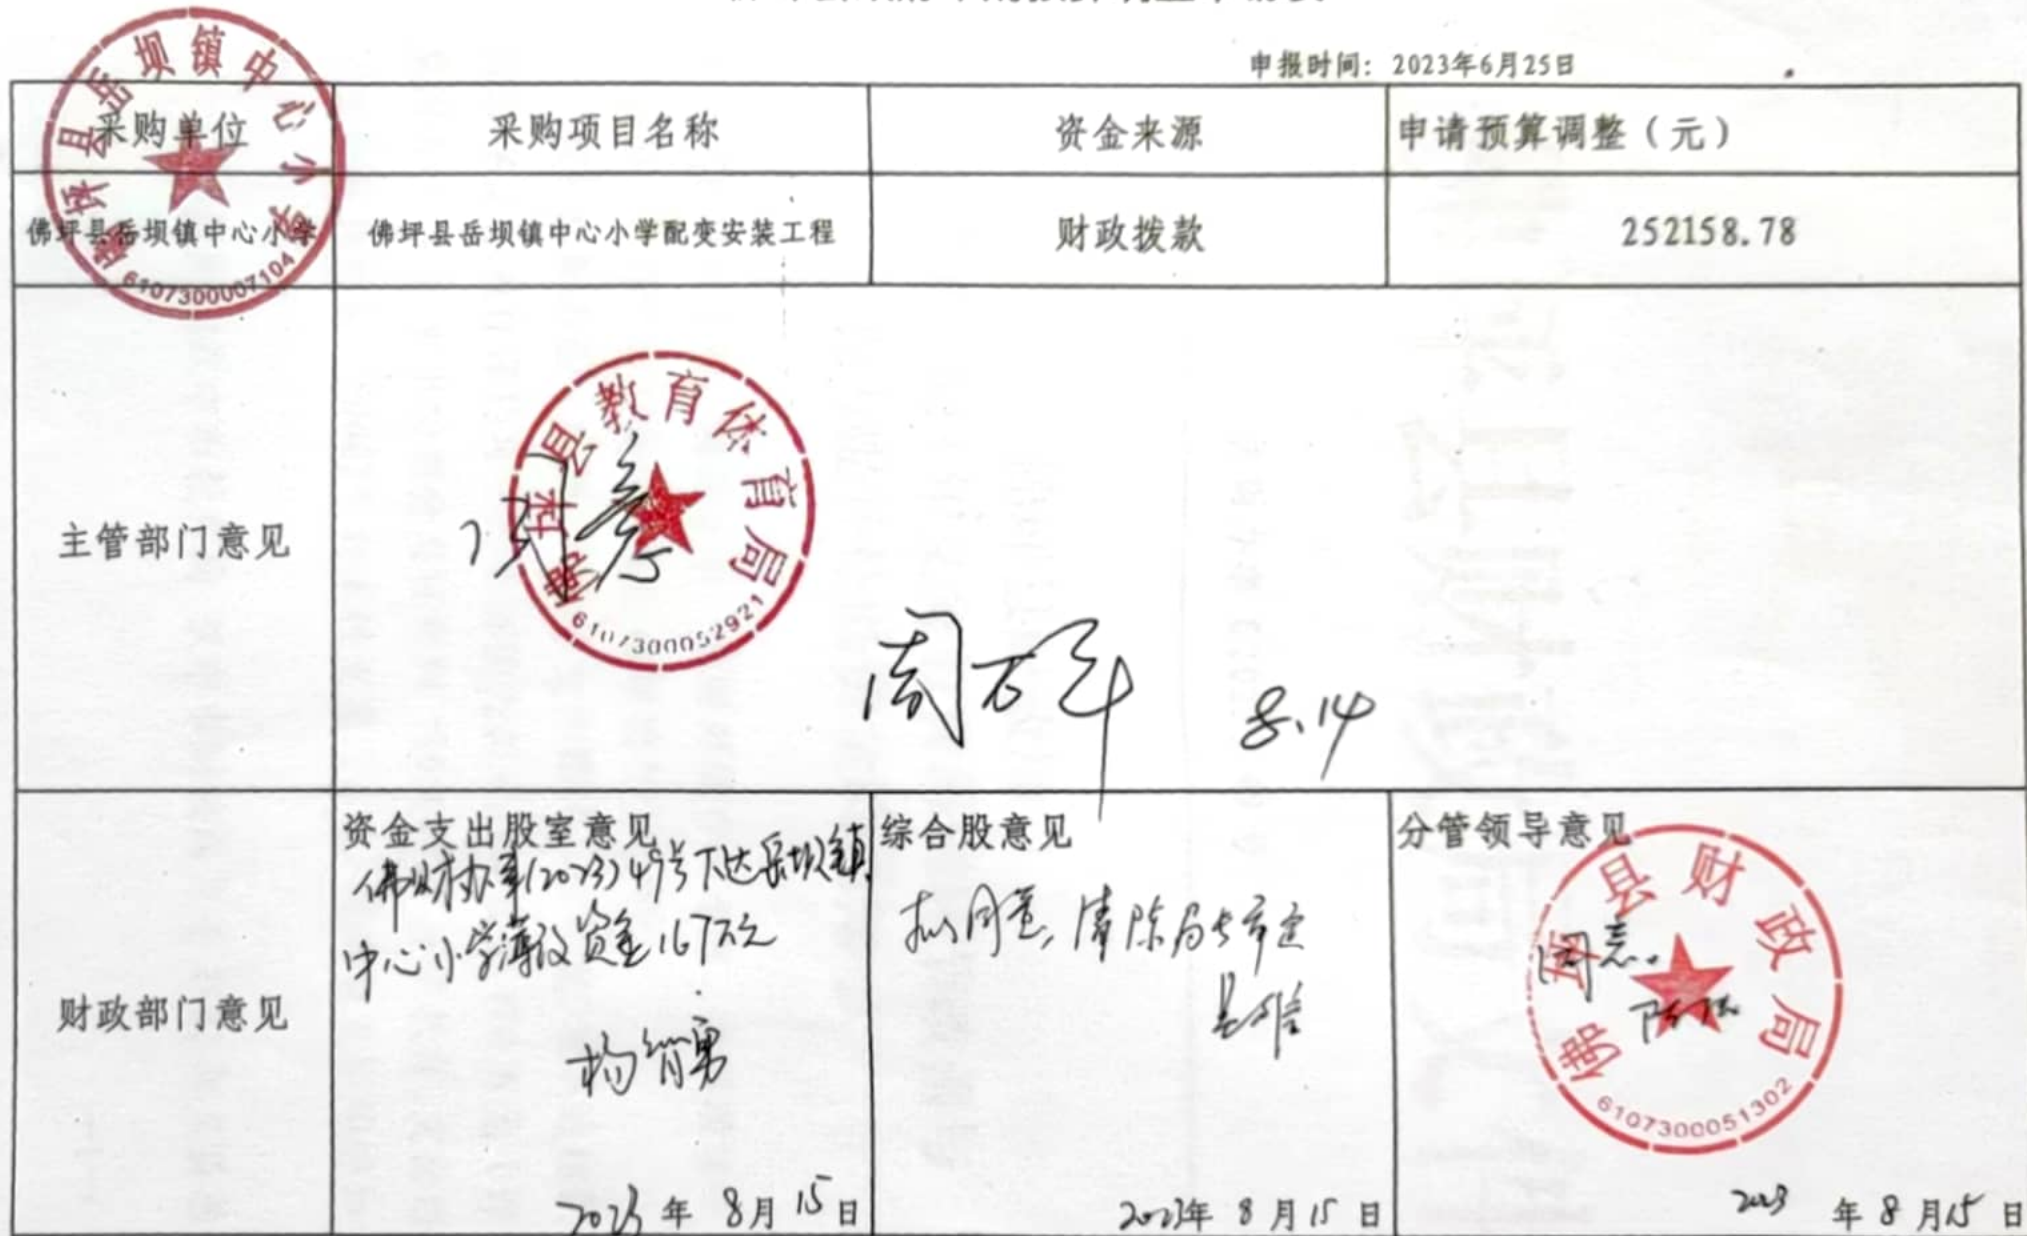 申报时间：2023年6月25日
采购单位 采购项目名称 资金来源 申请预算调整（元）
佛坪县岳坝镇中心小学 佛坪县岳坝镇中心小学配变安装工程 财政拨款 252158.78
佛坪县岳坝镇中心小学
6107300007104
主管部门意见
佛坪县教育体育局
6107300052921
8.14
财政部门意见
资金支出股室意见
佛财办事(2023)49号下达岳坝镇
中心小学薄改资金167万元
杨智勇
2023年8月15日
综合股意见
拟同意,请陈局长审定
2023年8月15日
分管领导意见
同意。
佛坪县财政局
6107300051302
2023年8月15日